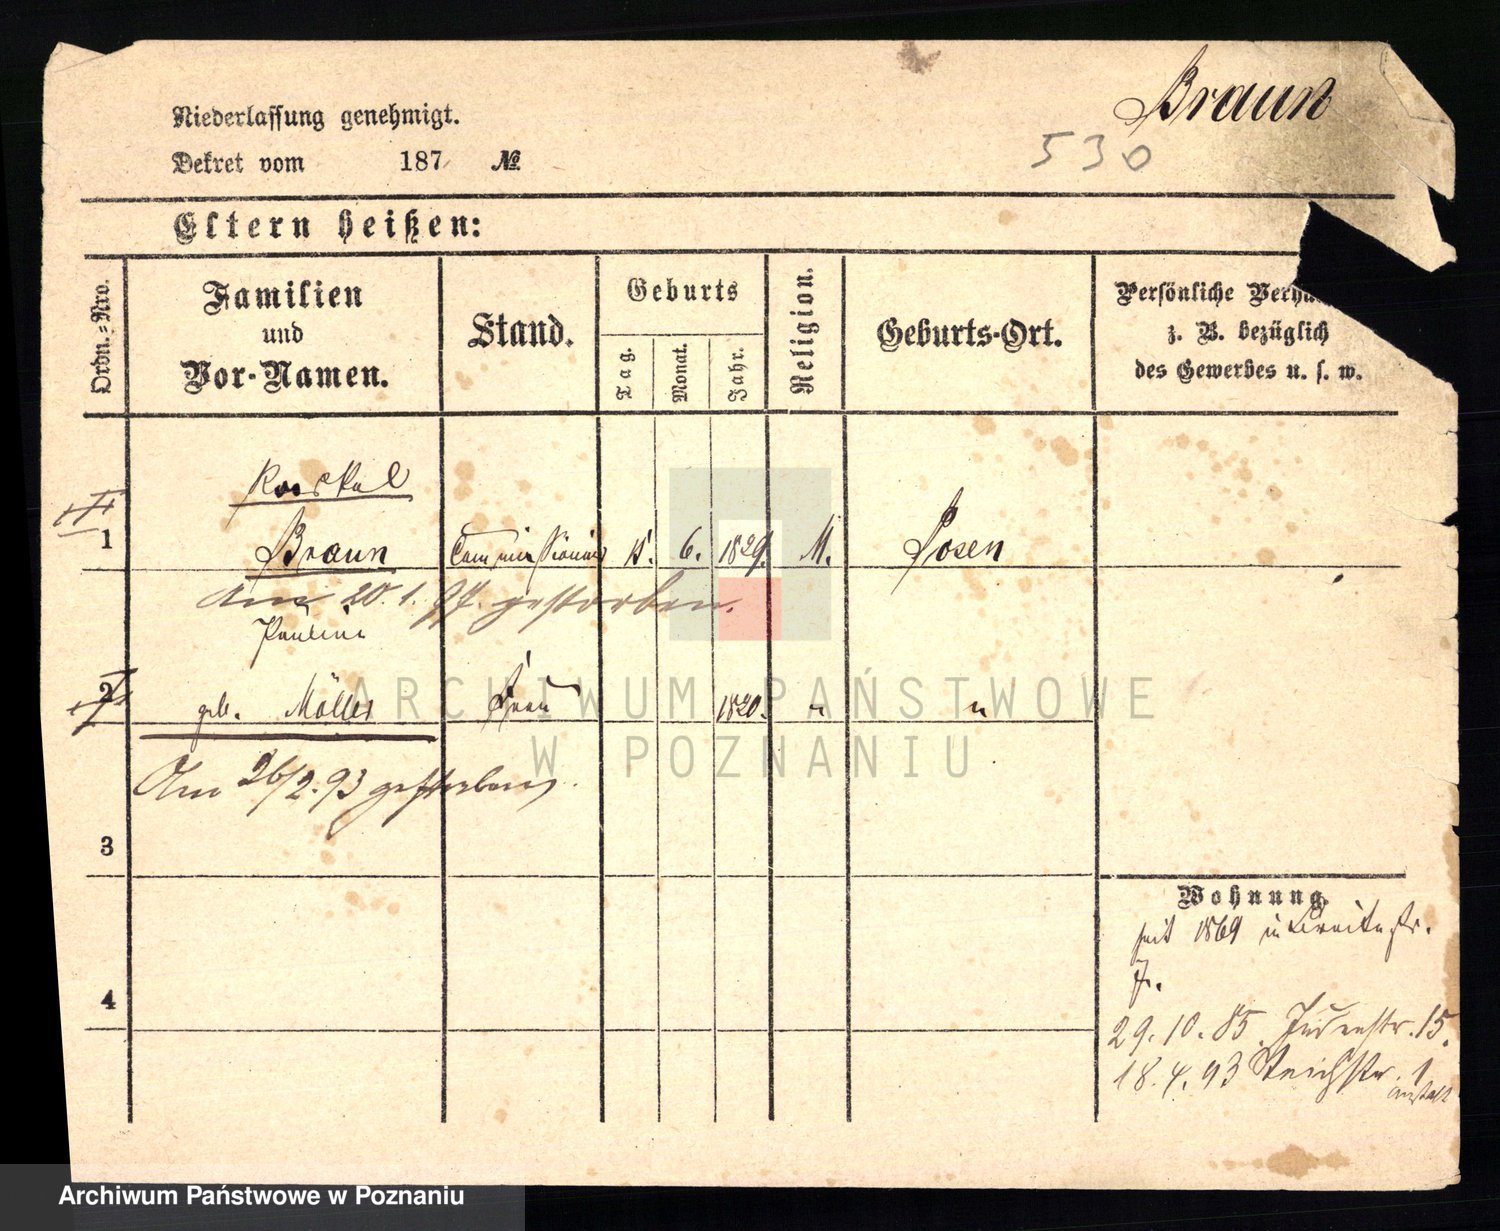 Braun
Niederlassung genehmigt.
530
Dekret vom 187 №
Eltern heißen:
Ordn.-Nro.
Familien
und
Vor-Namen.
Stand.
Geburts
Tag.
Monat.
Jahr.
Religion.
Geburts-Ort.
Persönliche
z. B. bezüglich
des Gewerbes u. s. w.
1
Braun 6. 1829. M. Posen
Am 20. 1. gestorben.
Pauline
2
geb. Möller Frau 1820. " "
Am 26/2. 93 gestorben.
3
4
Wohnung.
seit 1869 in Breitestr.
7.
29. 10. 85. Judenstr. 15.
18. 4. 93 Teichstr. 1
Anstalt
ARCHIWUM PAŃSTWOWE
W POZNANIU
Archiwum Państwowe w Poznaniu